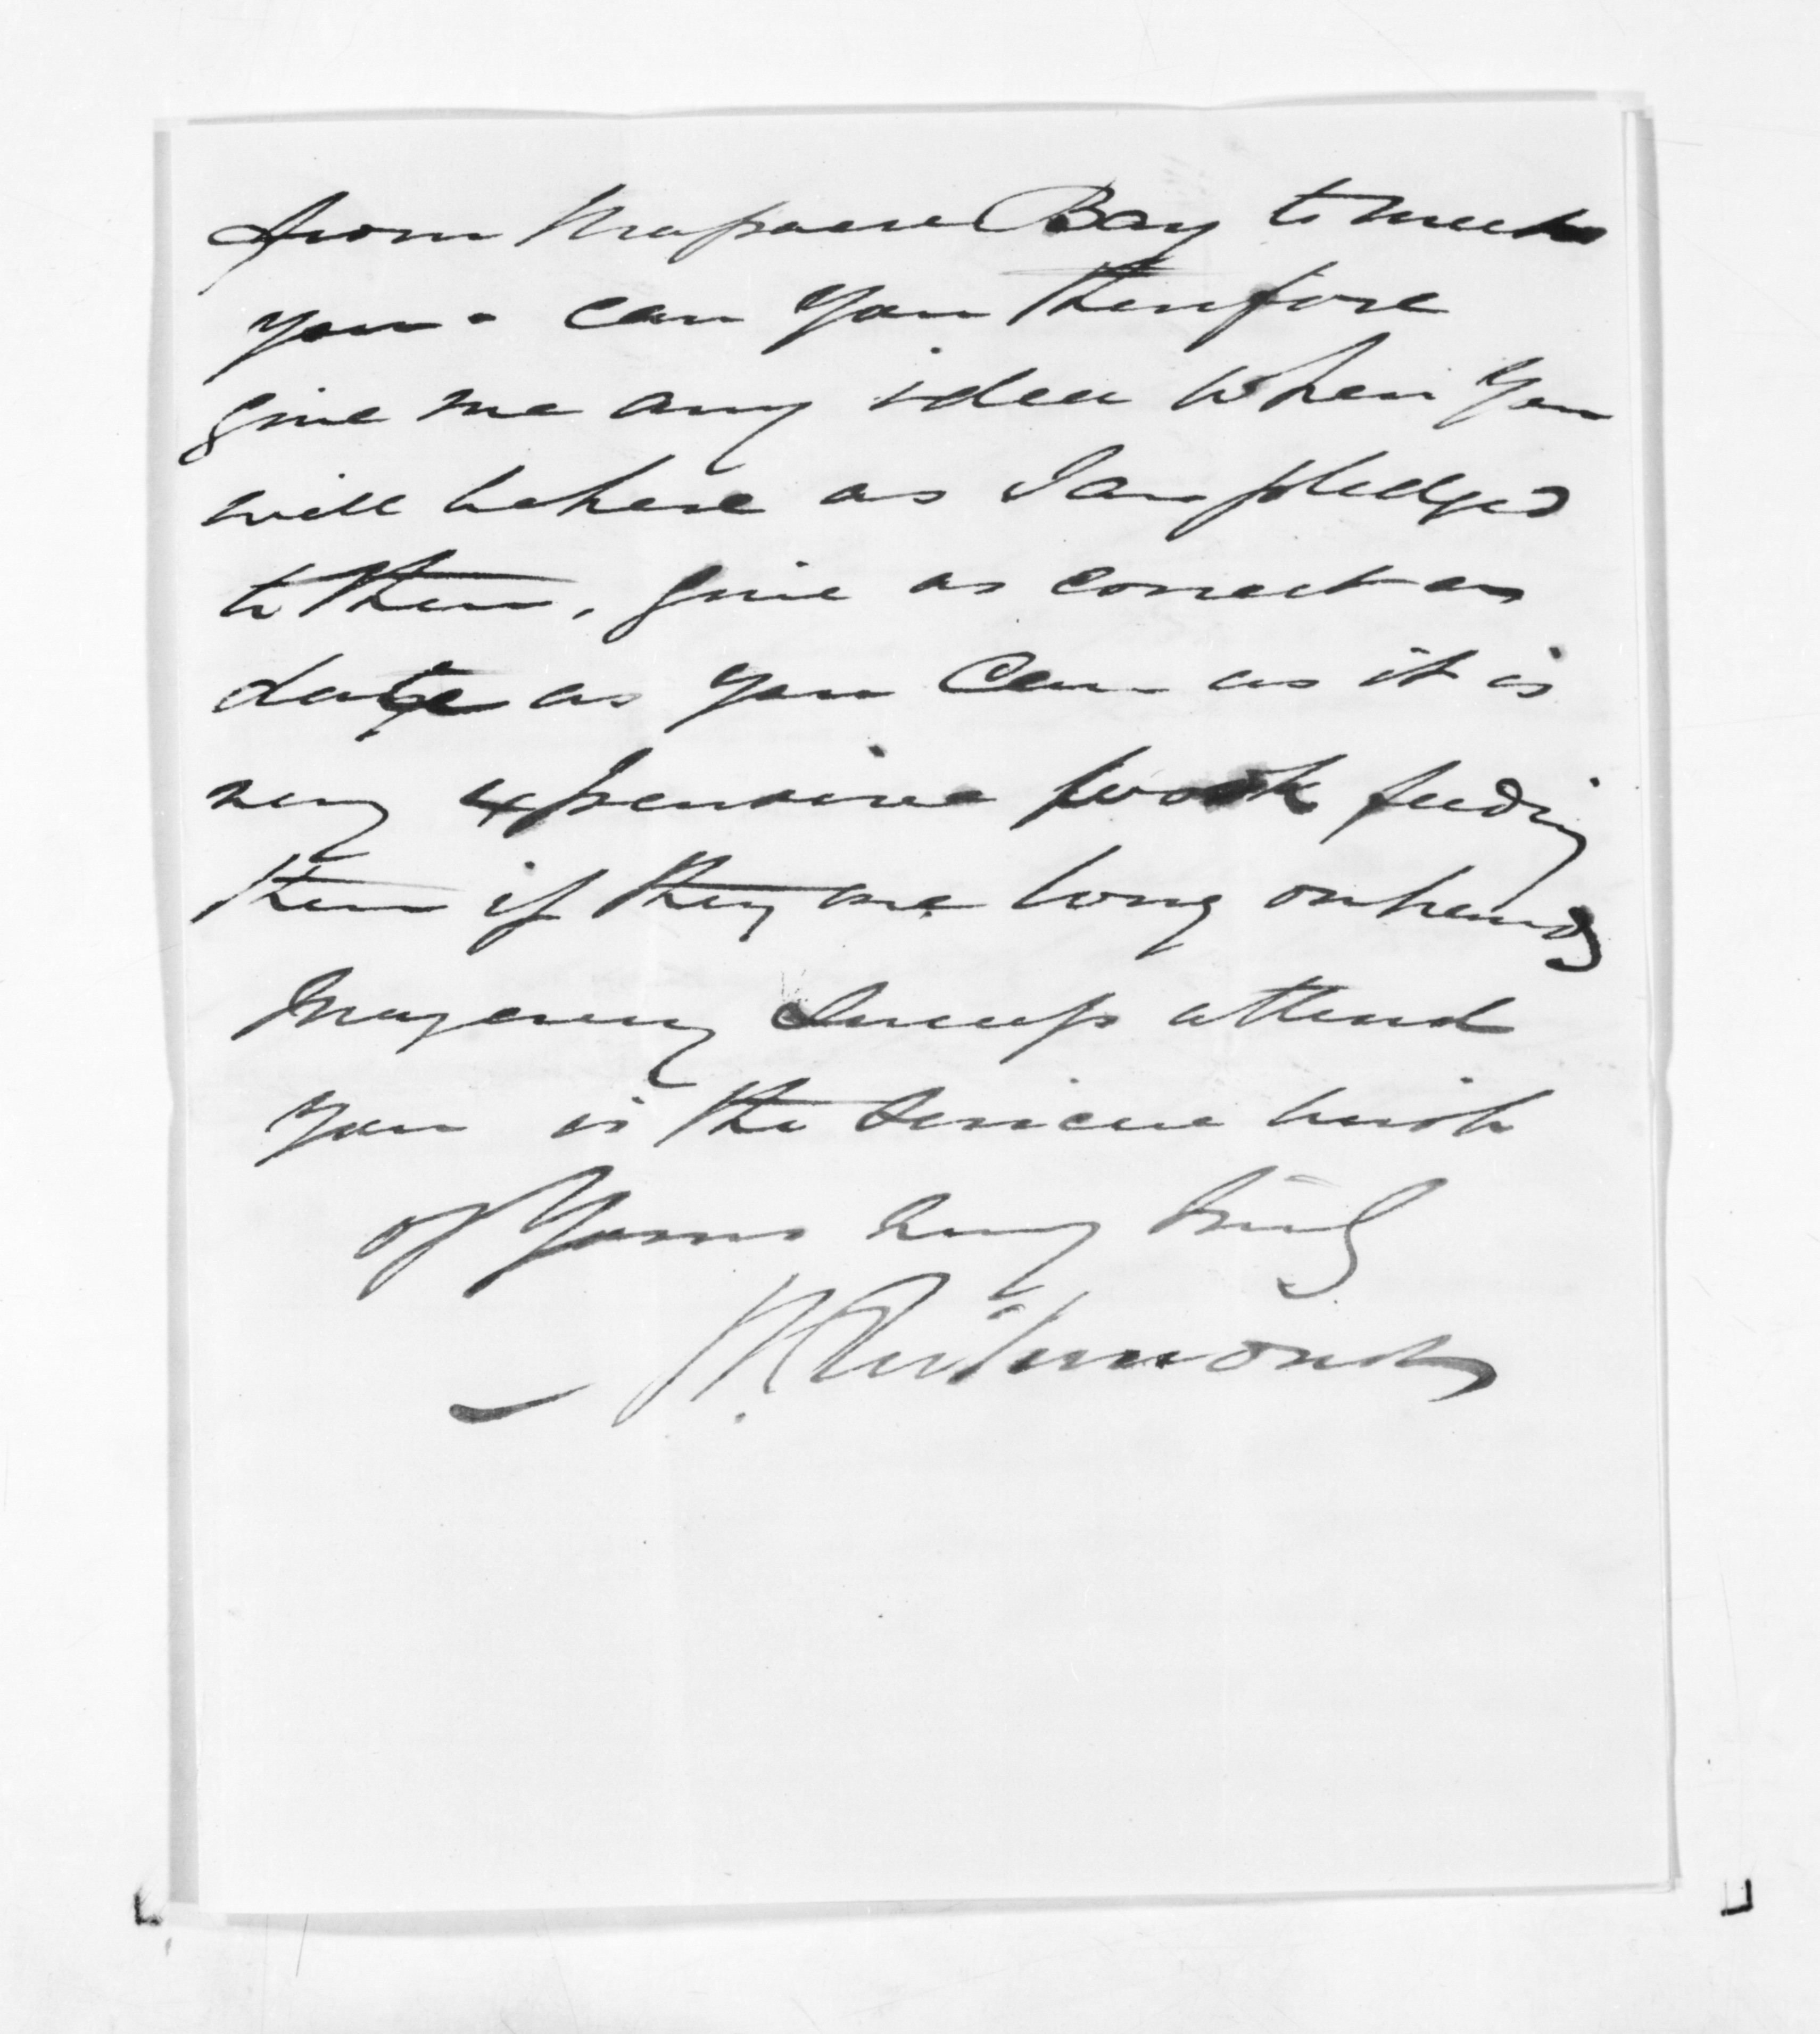 from Massacre Bay to meet
you. can you therefore
give me any idea when you
will be here as I am pledged
to them, give as correct a
date as you can as it is
very expensive work feeding
them if they are long on hand
May every success attend
you is the sincere wish
of yours very truly
Richmond